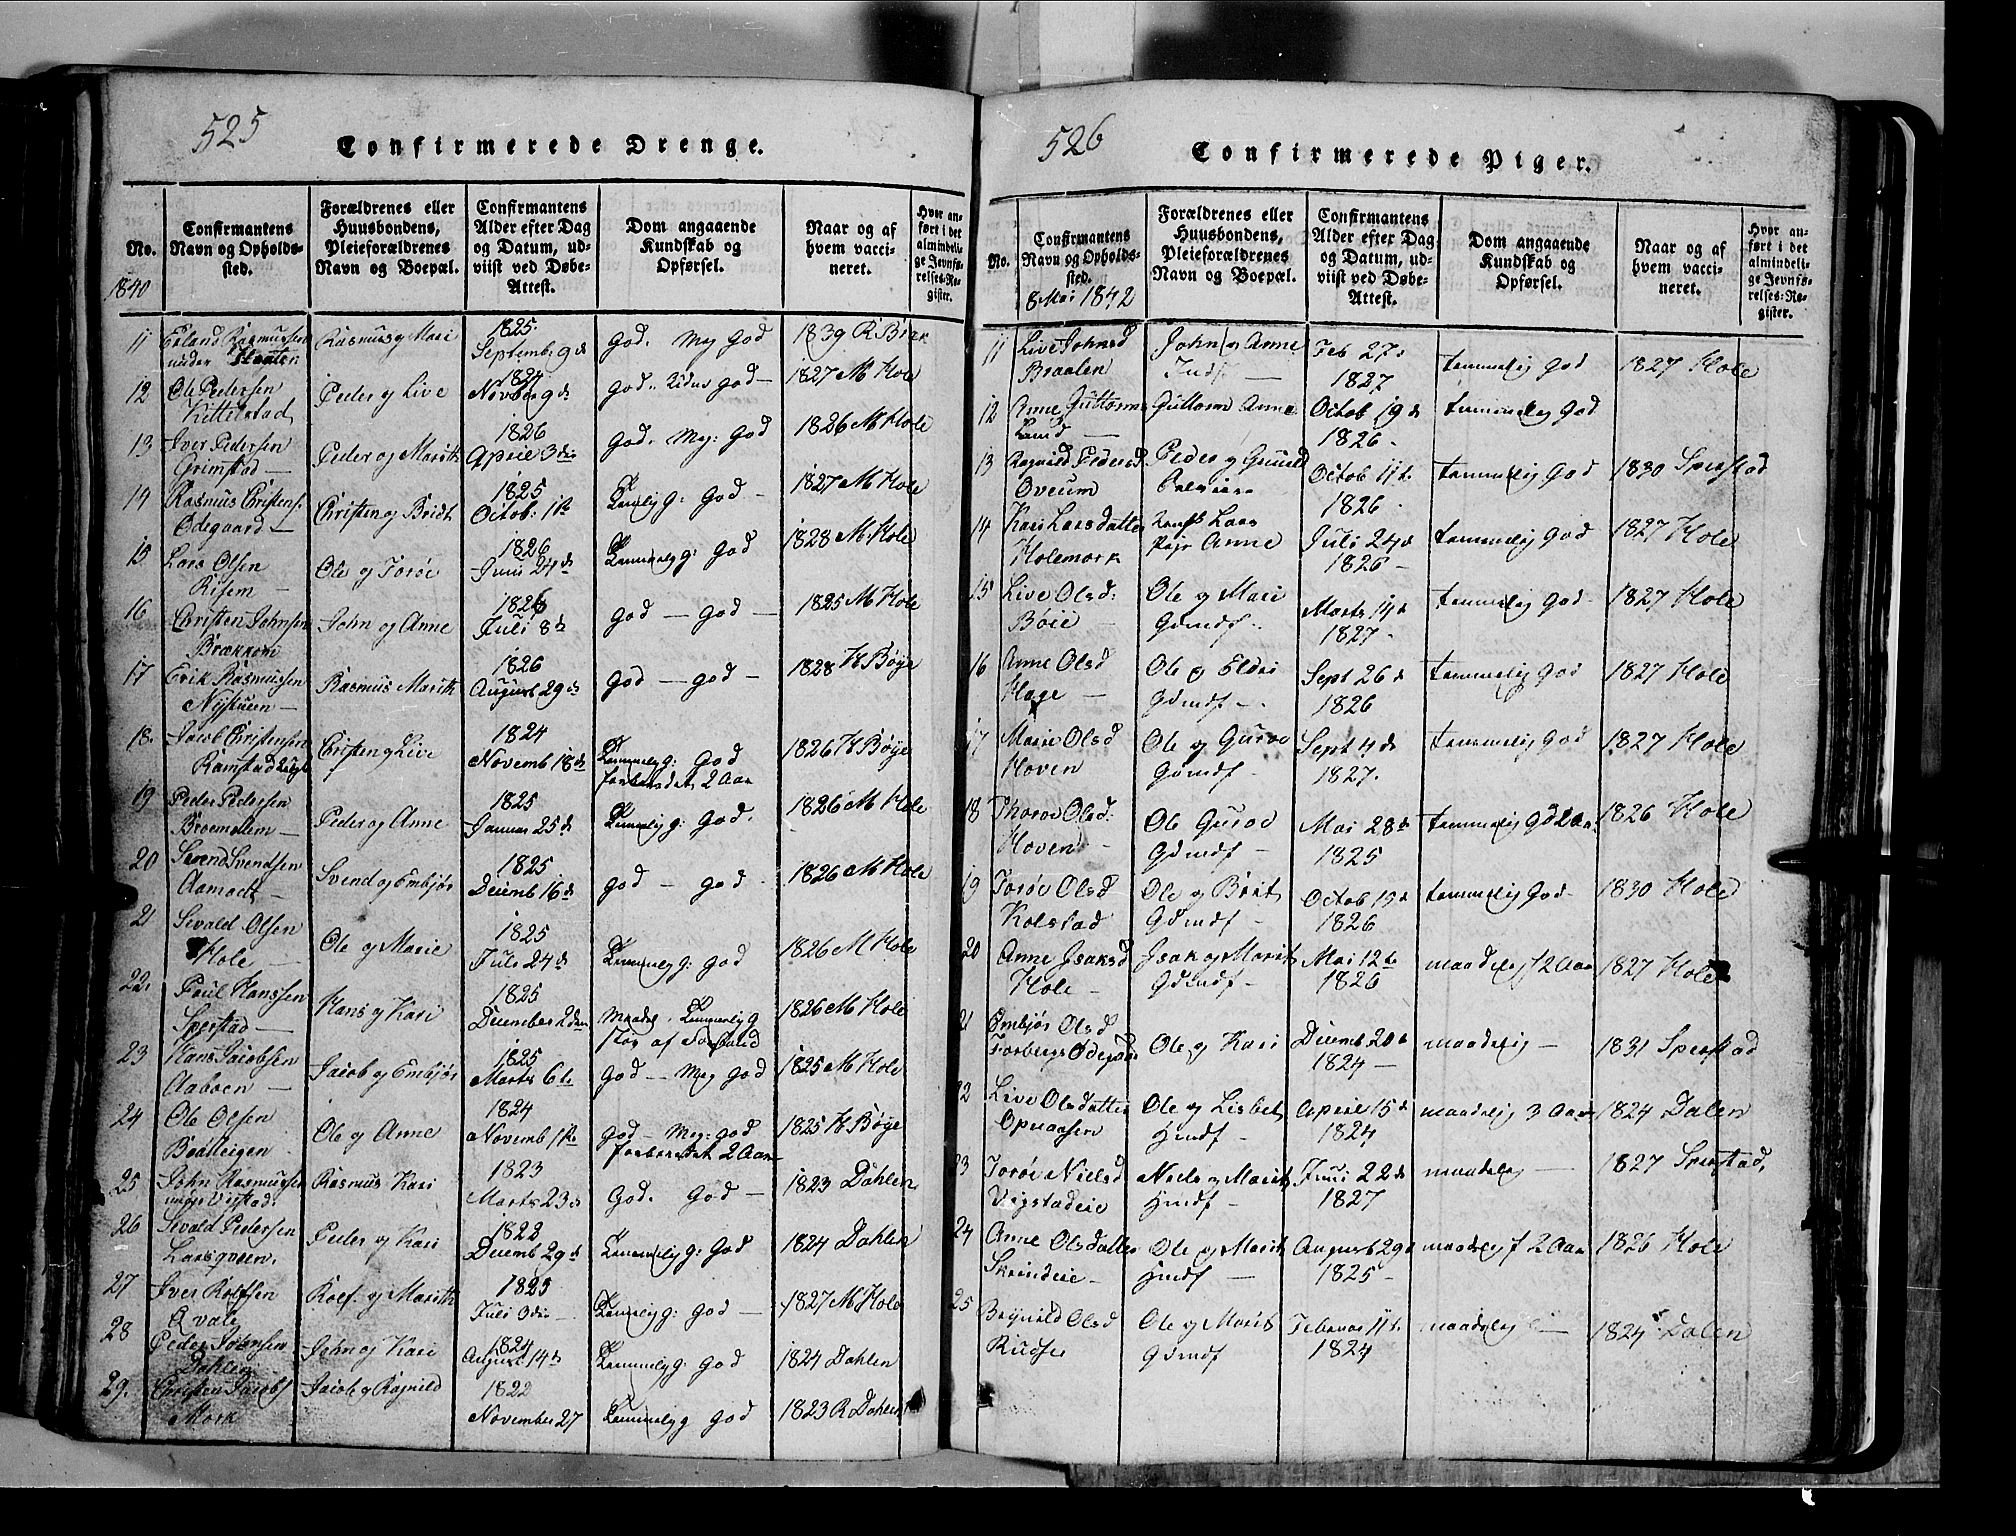 525
Confirmerede Drenge.
No. 1840
Confirmantens Navn og Opholdssted.
Forældrenes eller Huusbondens, Pleieforældrenes Navn og Boepæl.
Confirmantens Alder efter Dag og Datum, udviist ved Døbe-Attest.
Dom angaaende Kundskab og Opførsel.
Naar og af hvem vaccineret.
Hvor anført i det almindelige Jevnførelses-Register.
11 Erland Rasmussen under Rasmus og Mari 1825 Septemb 9de God. Meg God 1839 R
12 Ole Pedersen Kittelstad Peder og Live 1824 Novbr 9de God God 1827 M Hole
13 Iver Pedersen Grimstad Peder og Marith 1826 April 3die God. Meg: God 1826 M Hole
14 Rasmus Christens. Ødegaard Christen og Bridt 1825 Octob. 1ste Temmelig: God 1827 M Hole
15 Lars Olsen Risem Ole og Torøe 1826 Juni 24de Temmelig: God 1828 M. Hole
16 Christen Johnsen Brækkom John og Anne 1826 Juli 8de God - God 1825 M Hole
17 Erik Rasmussen Nystuen Rasmus Marith 1826 August 29de God - God 1828 H Bøye
18. Jacob Christensen Ramstad Christen og Live 1824 Novemb 18de Temmelig: God forberedet 2 Aar 1826 H Bøye
19 Peder Pedersen Peder og Anne 1825 Januar 25de Temmelig: God. 1826 M Hole
20 Svend Svendsen Aamodt Svend og Embjør 1825 Decemb 16de God - God 1826 M Hole
21 Sevald Olsen Hole Ole og Marie 1825 Juli 24de Temmelig: God 1826 M Hole
22. Poul Hanssen Sperstad Hans og Kari 1825 December 2den Maadel. Temmelig Stor af Forstand 1826 M Hole
23 Hans Jacobsen Aaboen Jacob og Embjør 1825 Marts 6te God - Meg God 1825 M Hole
24 Ole Olsen Ole og Anne 1824 Novemb 1ste God - Meg: God forberedet 2 Aar 1825 H Bøye
25 John Rasmussen under Vigstad. Rasmus Kari 1823 Marts 23de God. God 1823 Dahlen
26 Sevald Pedersen Larsqveen. Peder og Kari 1822 Decemb 29de Temmelig: God 1824 Dahlen
27 Iver Rolfsen Qvale Rolf. og Marith 1825 Juli 3die Temmelig: God 1827 M Hole
28 Peder Johnsen Dahlen John og Kari 1824 August 14de Temmelig: God 1824 Dahlen
29. Christen Jacobs Mork Jacob og Ragnild 1822 November 27 Temmelig God 1823 R Dahlen
526
Confirmerede Piger.
No.
Confirmantens Navn og Opholdssted. 8 Mai 1842
Forældrenes eller Huusbondens, Pleieforældrenes Navn og Boepæl.
Confirmantens Alder efter Dag og Datum, udviist ved Døbe-Attest.
Dom angaaende Kundskab og Opførsel.
Naar og af hvem vaccineret.
Hvor anført i det almindelige Jevnførelses-Register.
11 Live Johnsd Braalen John og Anne Indf Feb 27de 1827 temmelig God 1827 Hole
12 Anne Guttorms Lund Guttorm Anne Octob 19de 1826 temmelig God
13 Ragnild Pedersd Oveum Peder og Octob 11te 1826 temmelig God 1830 Sperstad
14 Kari Larsdatter Holemork Lars Anne Juli 24de 1826 temmelig God 1827 Hole
15 Live Olsd: Bøie Ole og Mari Gdmdf Marts 14de 1827 temmelig God 1827 Hole
16 Anne Olsd Hage Ole og Eldri Gdmdf Sept 26de 1826 temmelig God 1827 Hole
17 Marie Olsd Hoven Ole og Guroe Gdmdf Sept 4de 1827. temmelig God 1827 Hole
18 Thoroe Olsd: Hoven Ole Guroe Gdmdf Mai 28de 1825 temmelig God 2 Aar 1826 Hole
19 Torøe Olsd Kolstad Ole og Brit Gdmdf Octob 19de 1826 temmelig God 1830 Hole
20 Anne Isaksd Hole Isak og Marit Gdmdf Mai 12te 1826 maadelig f 2 Aar 1827 Hole
21 Embjør Olsd Forbergs Ødegaard Ole og Kari Decemb 20de 1824 maadelig 1831 Sperstad
22 Live Olsdatter Opnaasen Ole og Lisbet Hmdf April 15de 1824 maadelig 3 Aar 1824 Dalen
23 Torøe Nielsd Vigstadeie Niels og Marit Hmdf Juni 22de 1827 maadelig 1827 Sperstad,
24 Anne Olsdatter Skrindeie Ole og Marit Hmdf August 29de 1825 maadelig f 2 Aar 1826 Hole
25 Ragnild Olsd Rudse Ole og Marit Gdmdf Februar 11te 1824 maadelig 1824 Dalen